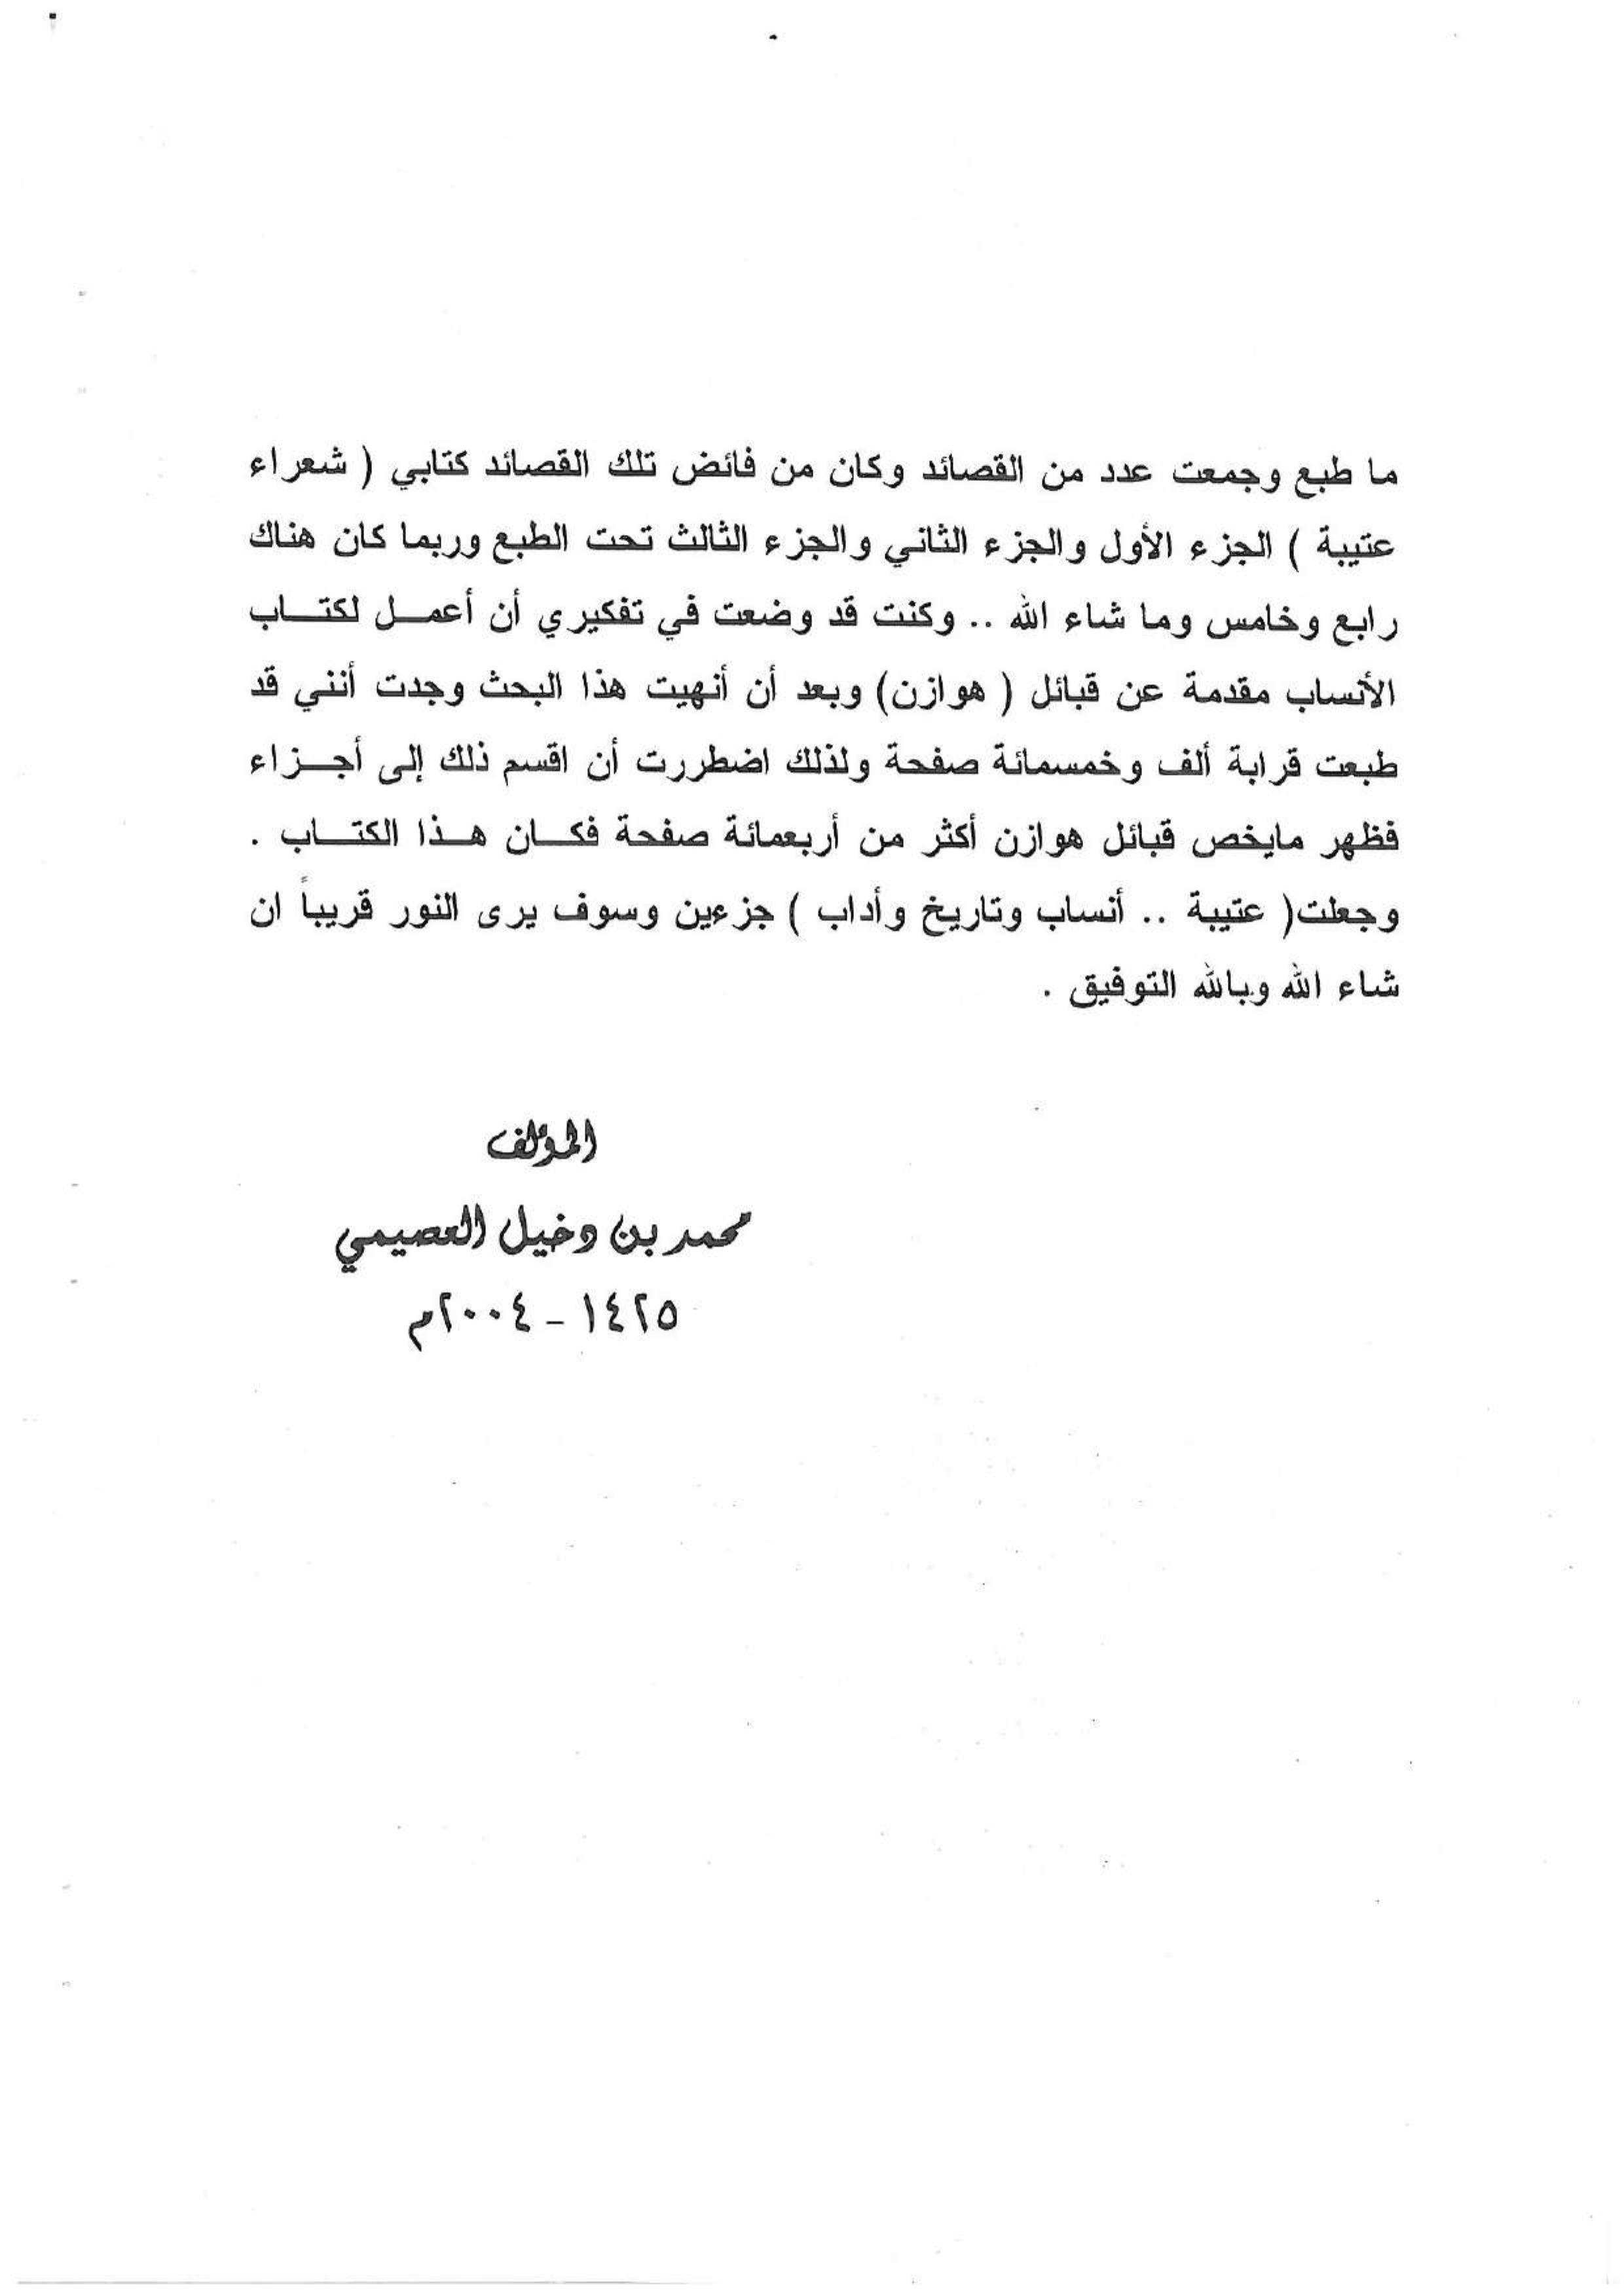 ما طبع وجمعت عدد من القصائد وكان من فائض تلك القصائد كتابي ( شعراء
عتيبة ) الجزء الأول والجزء الثاني والجزء الثالث تحت الطبع وربما كان هناك
رابع وخامس وما شاء الله .. وكنت قد وضعت في تفكيري أن أعمل لكتاب
الأنساب مقدمة عن قبائل ( هوازن) وبعد أن أنهيت هذا البحث وجدت أنني قد
طبعت قرابة ألف وخمسمائة صفحة ولذلك اضطررت أن اقسم ذلك إلى أجزاء
فظهر مايخص قبائل هوازن أكثر من أربعمائة صفحة فكان هذا الكتاب .
وجعلت( عتيبة .. أنساب وتاريخ وأداب ) جزءين وسوف يرى النور قريباً ان
شاء الله وبالله التوفيق .
المؤلف
محمد بن دخيل العصيمي
١٤٢٥ - ٢٠٠٤م